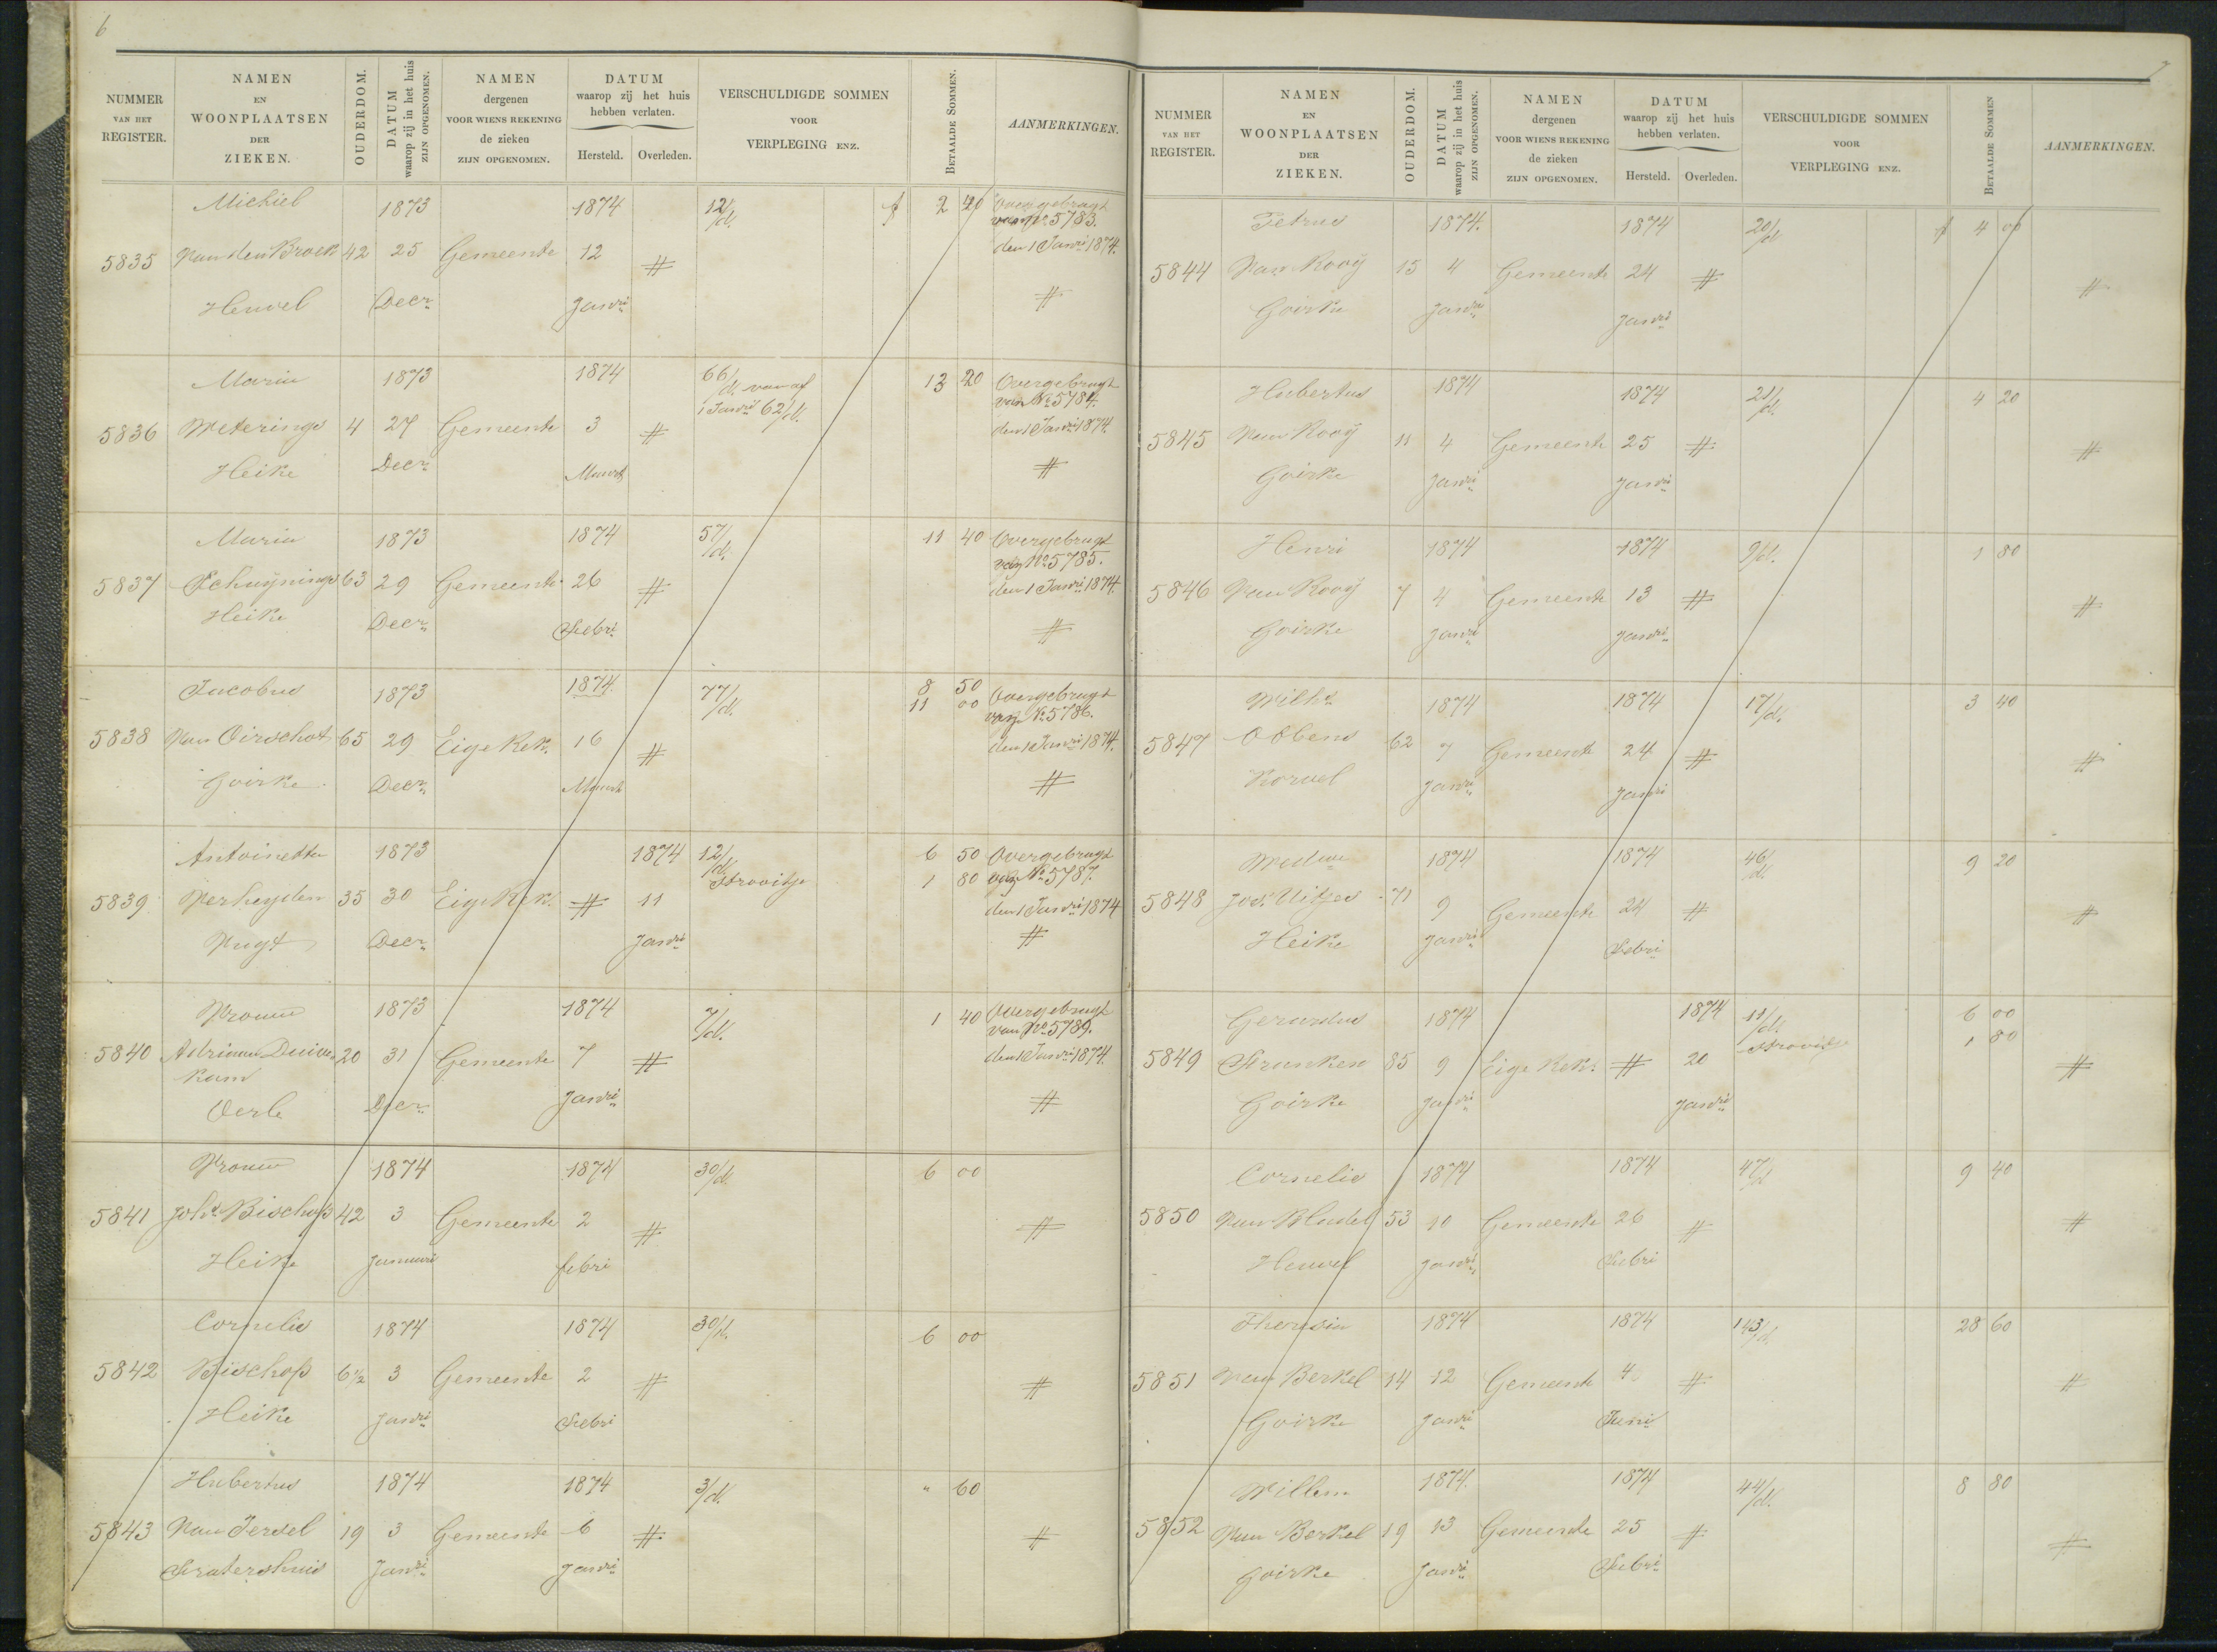 6
NUMMER VAN HET REGISTER.
NAMEN EN WOONPLAATSEN DER ZIEKEN.
OUDERDOM.
DATUM waarop zij in het huis ZIJN OPGENOMEN.
NAMEN dergenen VOOR WIENS REKENING de zieken ZIJN OPGENOMEN.
DATUM waarop zij het huis hebben verlaten.
Hersteld. Overleden.
VERSCHULDIGDE SOMMEN VOOR VERPLEGING ENZ.
BETAALDE SOMMEN.
AANMERKINGEN.
Michiel 1873 1874 12/d. f 2 40 Overgebragt
van No 5783.
5835 Van den Broek 42 25 Gemeente 12 # den 1 Janri 1874.
Heuvel Decr Janri #
Maria 1873 1874 66/d. vanaf 13 20 Overgebragt
1 Janri 62/d. van No 5784.
5836 Weterings 4 27 Gemeente 3 # den 1 Janri 1874.
Heike Decr Maart #
Maria 1873 1874 57/d. 11 40 Overgebragt
van No 5785.
5837 Schuijnings 63 29 Gemeente 26 # den 1 Janri 1874.
Heike Decr Febri #
Jacobus 1873 1874 77/d. 8 50 Overgebragt
11 00 van No 5786.
5838 Van Oirschot 65 29 Eige Rek. 16 # den 1 Janri 1874.
Goirke Decr Maart #
Antoinetta 1873 1874 12/d. 6 50 Overgebragt
Strooitje 1 80 van No 5787.
5839 Verheyden 35 30 Eige Rek. # 11 den 1 Janri 1874
Vugt Decr Janri #
Vrouw 1873 1874 7/d. 1 40 Overgebragt
van No 5789.
5840 Adriaan Duive 20 31 Gemeente 7 # den 1 Janri 1874.
kam
Oerle Decr Janri #
Vrouw 1874 1874 30/d. 6 00
5841 Johs Bischops 42 3 Gemeente 2 # #
Heike Januari febri
Cornelis 1874 1874 30/d. 6 00
5842 Bischops 6½ 3 Gemeente 2 # #
Heike Janri Febri
Hubertus 1874 1874 3/d. " 60
5843 Van Iersel 19 3 Gemeente 6 # #
Fratershuis Janri Janri
7
NUMMER VAN HET REGISTER.
NAMEN EN WOONPLAATSEN DER ZIEKEN.
OUDERDOM.
DATUM waarop zij in het huis ZIJN OPGENOMEN.
NAMEN dergenen VOOR WIENS REKENING de zieken ZIJN OPGENOMEN.
DATUM waarop zij het huis hebben verlaten.
Hersteld. Overleden.
VERSCHULDIGDE SOMMEN VOOR VERPLEGING ENZ.
BETAALDE SOMMEN
AANMERKINGEN.
Petrus 1874. 1874 20/d f 4 00
5844 Van Rooy 15 4 Gemeente 24 # #
Goirke Janri Janri
Hubertus 1874 1874 21/d. 4 20
5845 Van Rooy 11 4 Gemeente 25 # #
Goirke Janri Janri
Henri 1874 1874 9/d. 1 80
5846 Van Rooy 7 4 Gemeente 13 # #
Goirke Janri Janri
Wilhs 1874 1874 17/d. 3 40
5847 Obbens 62 7 Gemeente 24 # #
Korvel Janri Janri
Weduwe 1874 1874 46/d. 9 20
5848 Jos. Uitjes 71 9 Gemeente 24 # #
Heike Janri Febri
Gerardus 1874 1874 11/d. 6 00
Strooitje 1 80
5849 Franken 85 9 Eige Rek. # 20 #
Goirke Janri Janri
Cornelis 1874 1874 47/d 9 40
5850 Van Bladel 53 10 Gemeente 26 # #
Heuvel Janri Febri
Theresia 1874 1874 143/d. 28 60
5851 Van Berkel 14 12 Gemeente 4 # #
Goirke Janri Juni
Willem 1874. 1874 44/d. 8 80
5852 Van Berkel 19 13 Gemeente 25 # #
Goirke Janri Febri